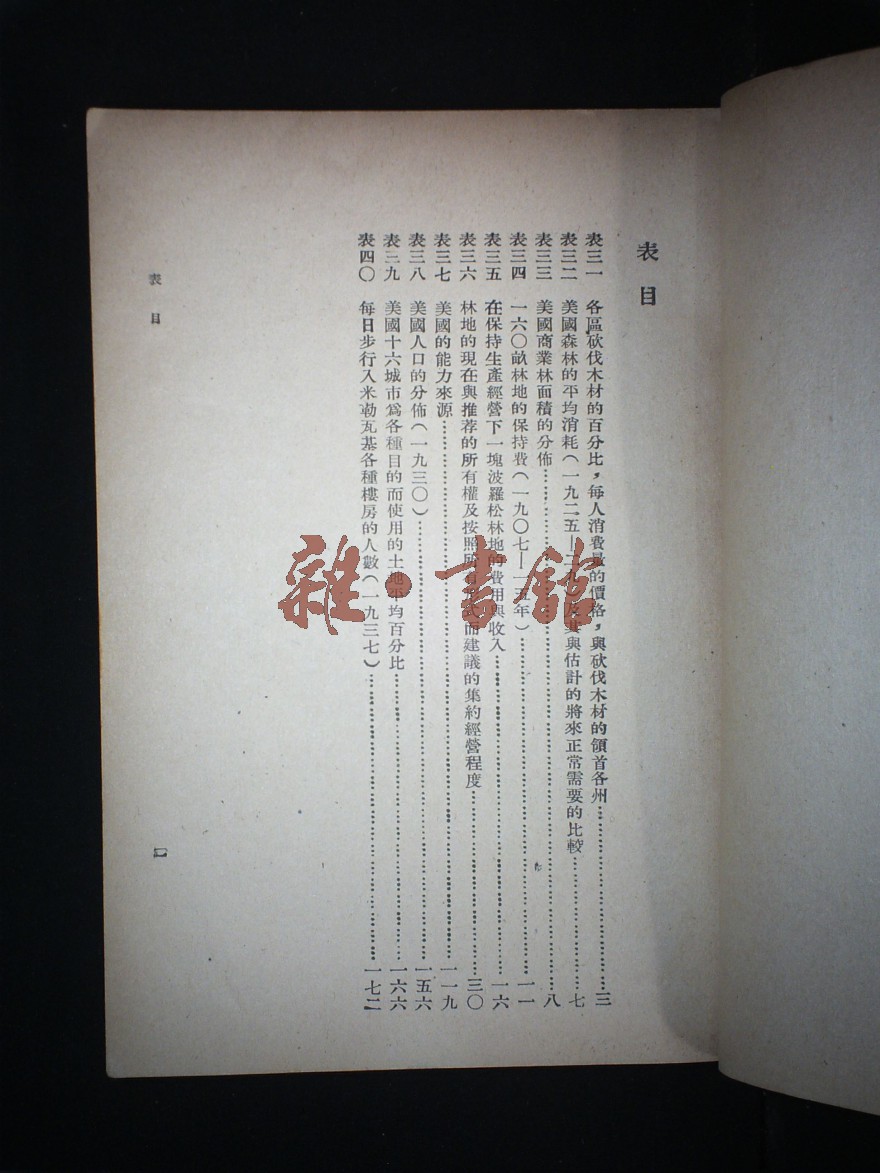 表目
表三一 各區砍伐木材的百分比，每人消費量的價格，與砍伐木材的領首各州……三
表三二 美國森林的平均消耗(一九二五—二九)及其與估計的將來正常需要的比較……七
表三三 美國商業林面積的分佈……八
表三四 一六〇畝林地的保持費(一九〇七—一五年)……一一
表三五 在保持生產經營下一塊波羅松林地的費用與收入……一六
表三六 林地的現在與推荐的所有權及按照所有 式而建議的集約經營程度……三〇
表三七 美國的能力來源……一一九
表三八 美國人口的分佈(一九三〇)……一五六
表三九 美國十六城市爲各種目的而使用的土地平均百分比……一六六
表四〇 每日步行入米勒瓦基各種樓房的人數(一九三七)……一七二
表目
雜·書館